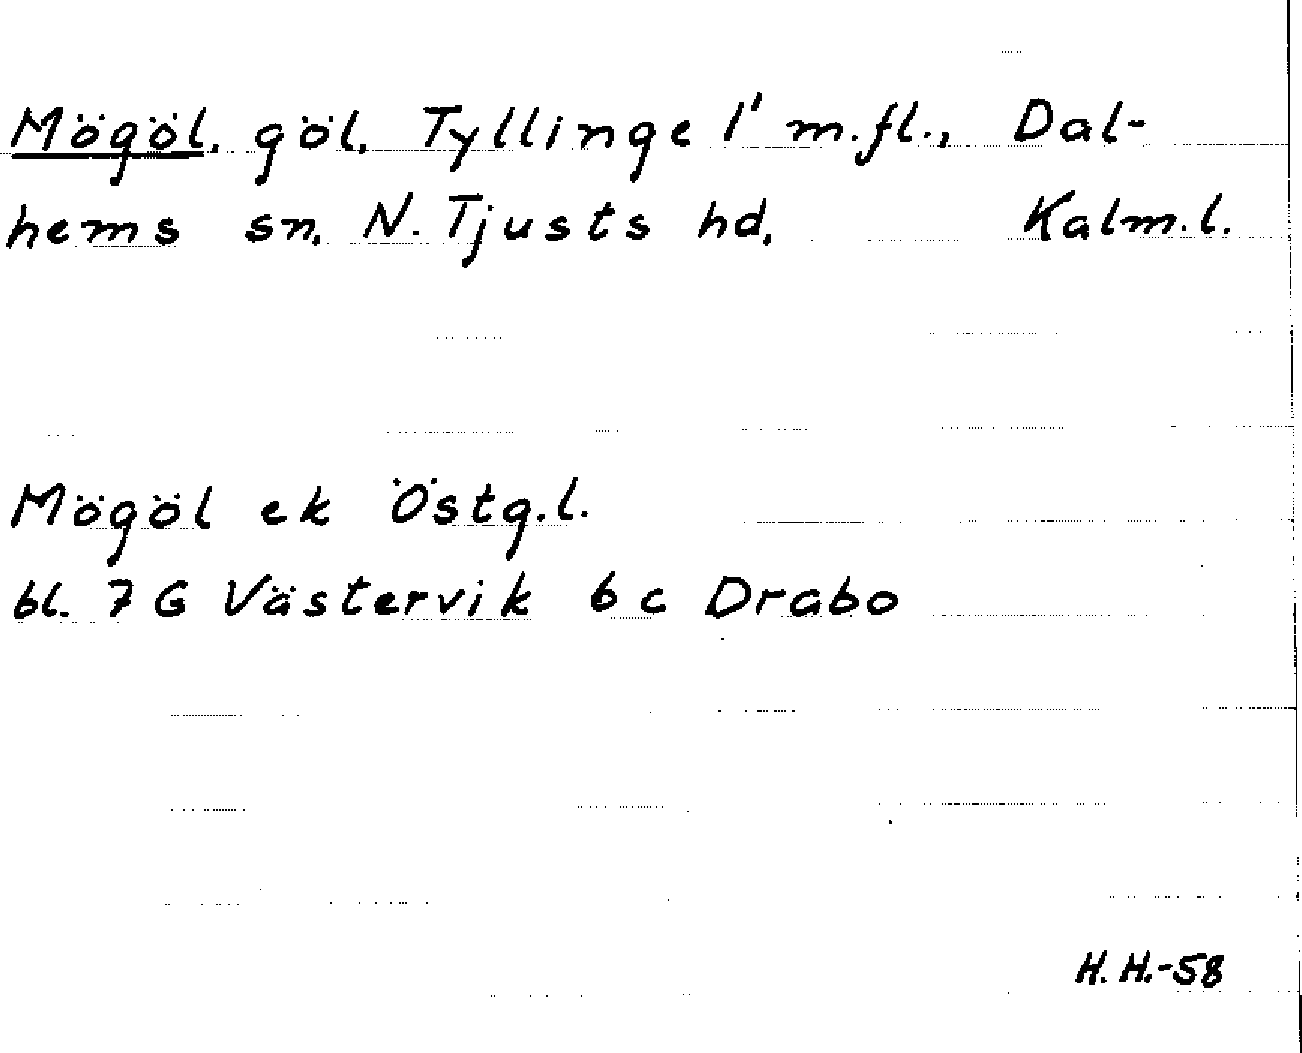 Mögöl, göl, Tyllinge 1' m.fl., Dal-
hems sn, N. Tjusts hd, Kalm.l.
Mögöl ek Östg.l.
bl. 7 G Västervik 6 c Drabo
H. H.-58